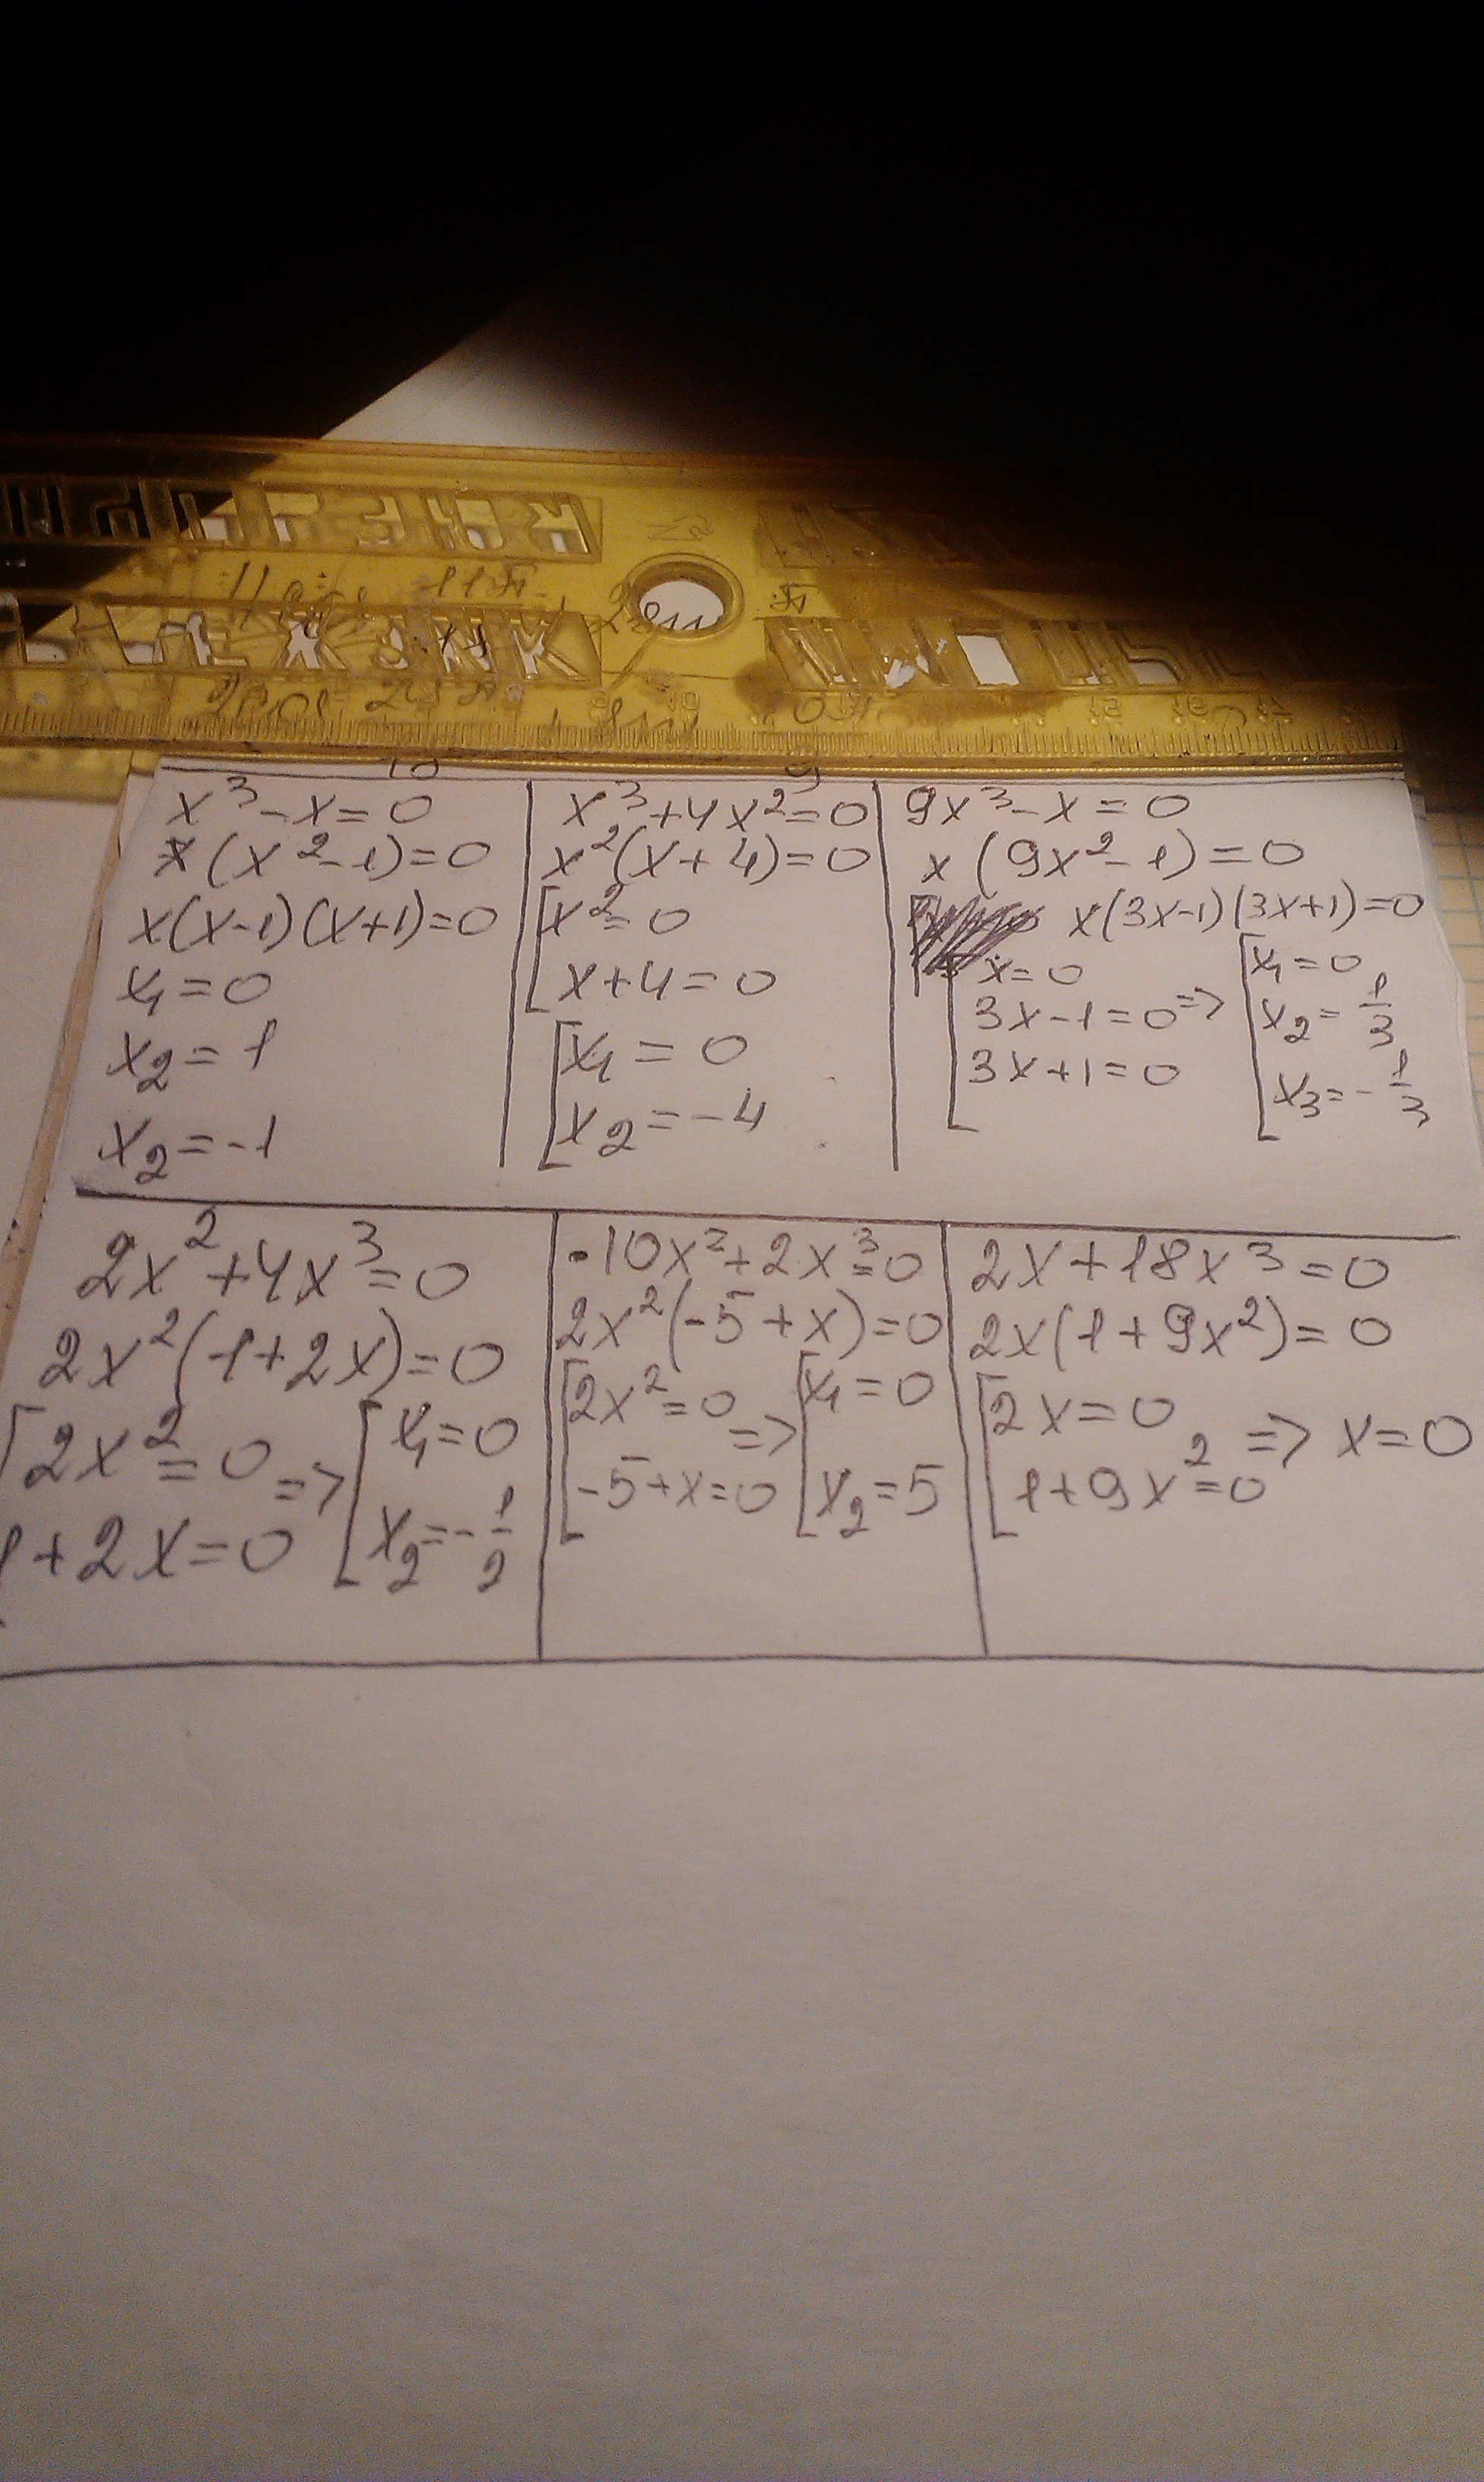 x³-x=0
x(x²-1)=0
x(x-1)(x+1)=0
x₁=0
x₂=1
x₂=-1
x³+4x²=0
x²(x+4)=0
[x²=0
x+4=0
[x₁=0
x₂=-4
9x³-x=0
x(9x²-1)=0
x(3x-1)(3x+1)=0
[x=0 [x₁=0
3x-1=0 => x₂=1/3
3x+1=0 x₃=-1/3
2x²+4x³=0
2x²(1+2x)=0
[2x²=0 => [x₁=0
1+2x=0 x₂=-1/2
-10x²+2x³=0
2x²(-5+x)=0
[2x²=0 => [x₁=0
-5+x=0 x₂=5
2x+18x³=0
2x(1+9x²)=0
[2x=0 => x=0
1+9x²=0